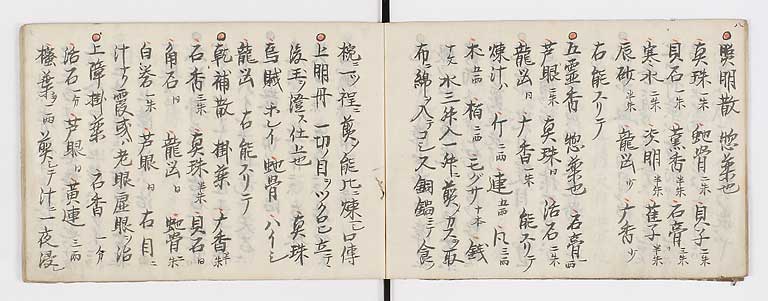 照明散 惣薬也
真珠 一朱 蚫骨 二朱 貝子 二朱
貝石 一朱 薫香 半朱 石膏 三朱
寒水 二朱 炎明 半朱 萑子 半朱
辰砂 半朱 龍出 少 丁香 少
右能スリテ
五霊香 惣薬也 石膏 一両
芦眼 三朱 真珠 同 活石 二朱
龍出 同 丁香 一朱 能スリテ
煉汁 竹 二両 連 五両 凡 三両
木 五両 栢 二両 モグサ 十本 銭
十文 水三升入一升ニ煎ツカスヲ取
布ニ綿ヲ入テコシ又銅鍋ニテ食
椀ニ一ツ程ニ煎ツ能比ニ煉ニ口傳
上明丹 一切ノ目ヲツクロ己立テ
後玉ヲ澄ス仕上也 真珠
烏賊 ホレイ 蚫骨 ハイシ
龍出 右能スリテ
乾補散 掛薬 丁香 半朱
石香 三朱 真珠 半朱 貝石 同
角石 同 龍出 同 蚫骨 二朱
白岩 一朱 芦眼 同 右目ニ
汁ヲ霞或ハ老眼虚眼ヲ治
上障掛薬 石香 一分
活石 一分 芦眼 同 黄連 三両
檗葉 一両 煎テ汁ニ一夜浸